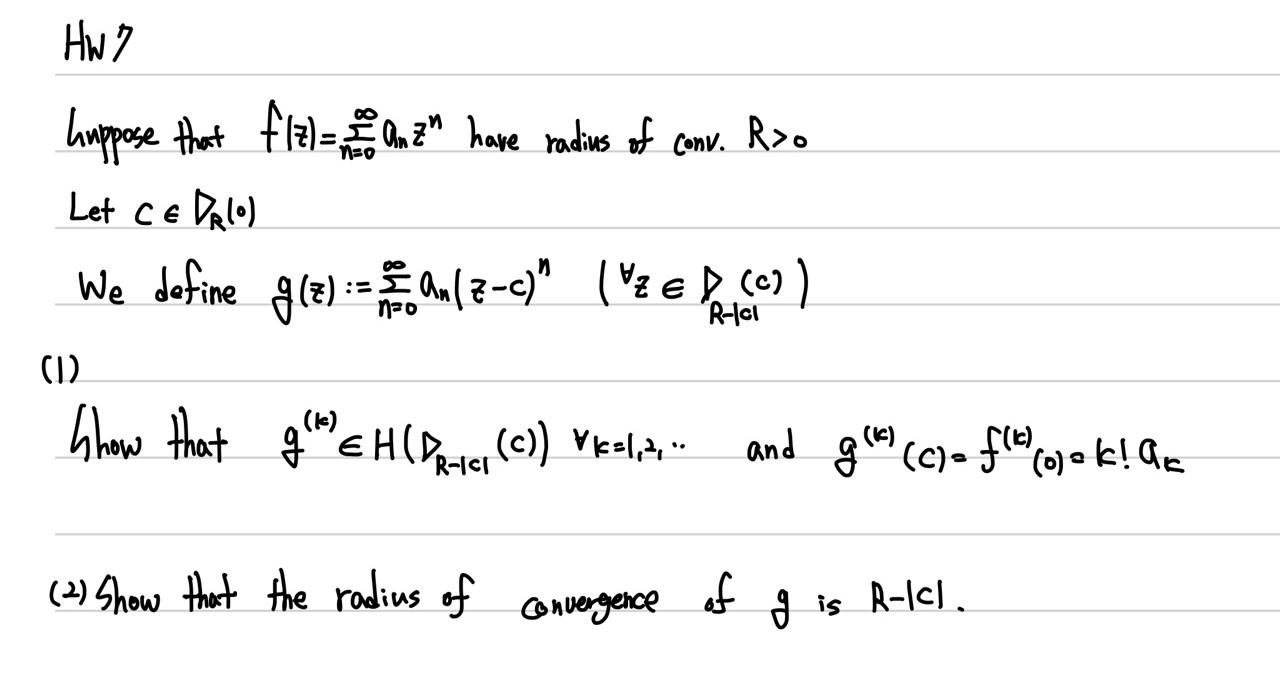 HW 7
Suppose that f(z)=∑_{n=0}^{∞} a_n z^n have radius of conv. R>0
Let c ∈ D_R(0)
We define g(z) := ∑_{n=0}^{∞} a_n (z-c)^n (∀z ∈ D_{R-|c|}(c))
(1)
Show that g^{(k)} ∈ H(D_{R-|c|}(c)) ∀k=1,2,.. and g^{(k)}(c) = f^{(k)}(0) = k! a_k
(2) Show that the radius of convergence of g is R-|c|.